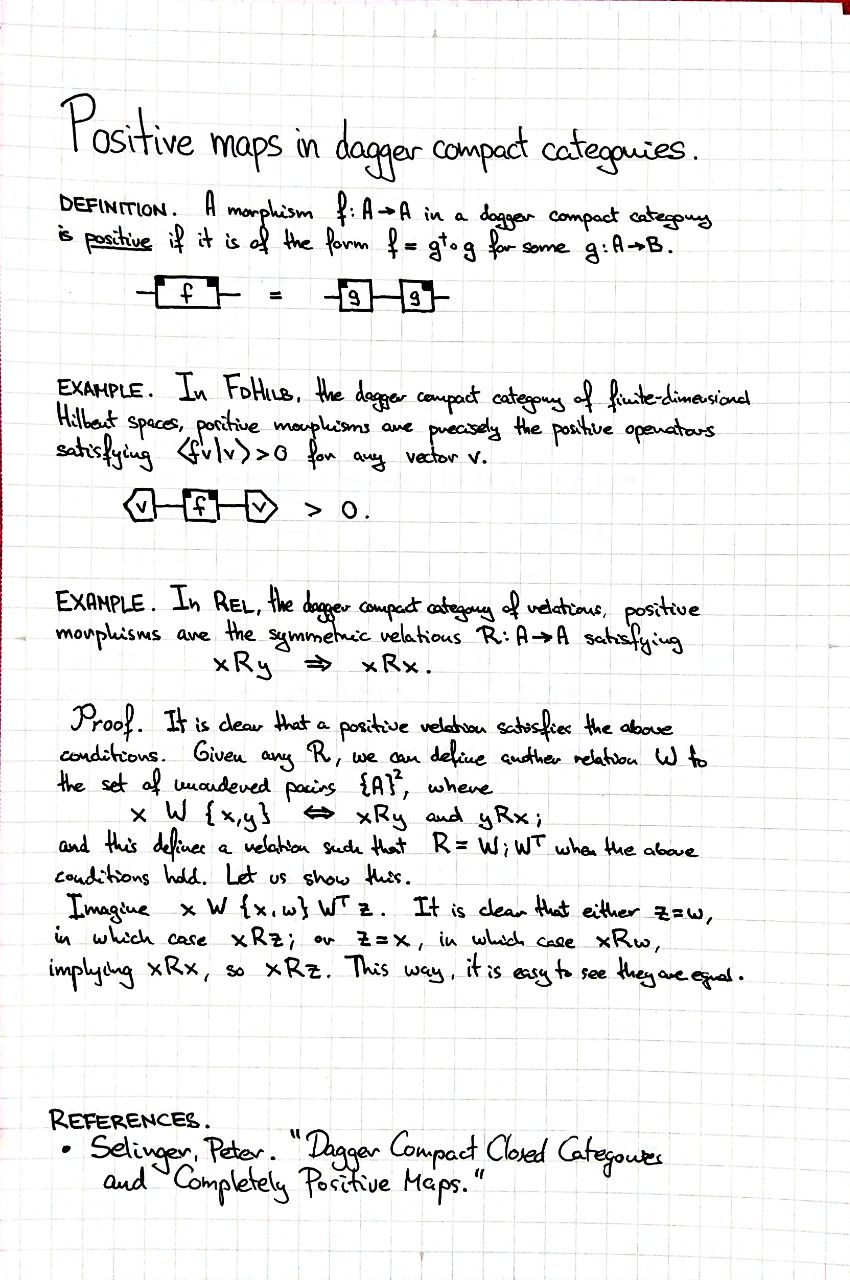 Positive maps in dagger compact categories.
DEFINITION. A morphism f: A→A in a dagger compact category
is positive if it is of the form f = g†∘g for some g: A→B.
f = g g
EXAMPLE. In FDHILB, the dagger compact category of finite-dimensional
Hilbert spaces, positive morphisms are precisely the positive operators
satisfying ⟨fv|v⟩>0 for any vector v.
v f v > 0.
EXAMPLE. In REL, the dagger compact category of relations, positive
morphisms are the symmetric relations R: A→A satisfying
xRy ⇒ xRx.
Proof. It is clear that a positive relation satisfies the above
conditions. Given any R, we can define another relation W to
the set of unordered pairs {A}², where
x W {x,y} ⇔ xRy and yRx;
and this defines a relation such that R = W;Wᵀ when the above
conditions hold. Let us show this.
Imagine x W {x,w} Wᵀ z. It is clear that either z=w,
in which case xRz; or z=x, in which case xRw,
implying xRx, so xRz. This way, it is easy to see they are equal.
REFERENCES.
• Selinger, Peter. "Dagger Compact Closed Categories
and Completely Positive Maps."